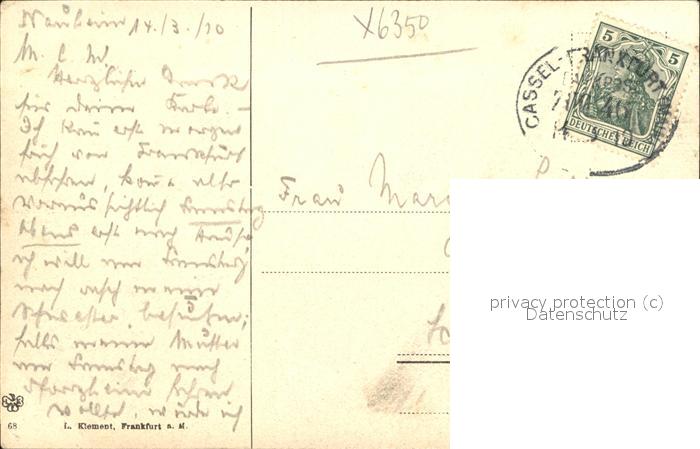 Nauheim 14./3./10
X6350
M. l. M.
Herzlichen Dank
für deine Karte. –
Ich kann erst morgen
früh von Frankfurt
abfahren, komme also
voraussichtlich Samstag
Abend erst nach Hause,
ich will nur Samstag
noch rasch meine
Schwester besuchen;
falls meine Mutter
nur Samstag nach
Pforzheim fahren
wollte, würde ich
Frau
5 5
DEUTSCHES REICH
CASSEL-FRANKFURT
privacy protection (c)
Datenschutz
68 L. Klement, Frankfurt a. M.